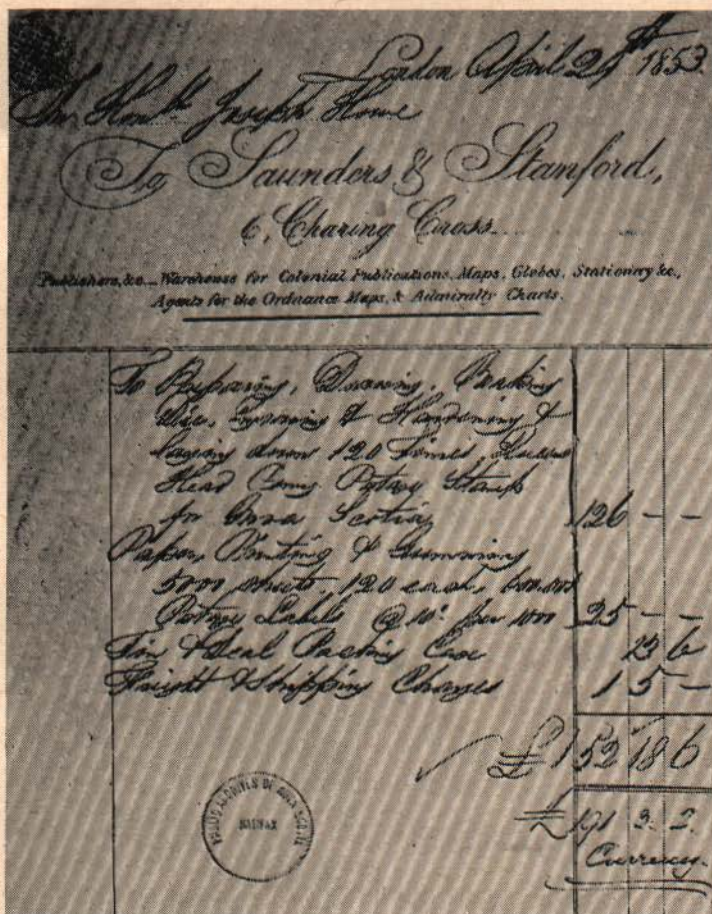 London April 1853
Honble Joseph Howe
To Saunders & Stamford,
6, Charing Cross
Publishers, &c. Warehouse for Colonial Publications, Maps, Globes, Stationery &c.,
Agents for the Ordnance Maps, & Admiralty Charts.
To Preparing, Drawing,
Die, Engraving & Hardening &
laying down 120 times, Queens
Head Postage Stamp
for Nova Scotia 126 - -
Paper, Printing & Gumming
5000 sheets, 120 each, 600,000
Postage Labels @ 10d per 1000 25 - -
Tin & Deal Packing Case 13 6
Freight & Shipping Charges 1 5 -
£152 18 6
£191 3. 2.
Currency.
PUBLIC ARCHIVES OF NOVA SCOTIA
HALIFAX